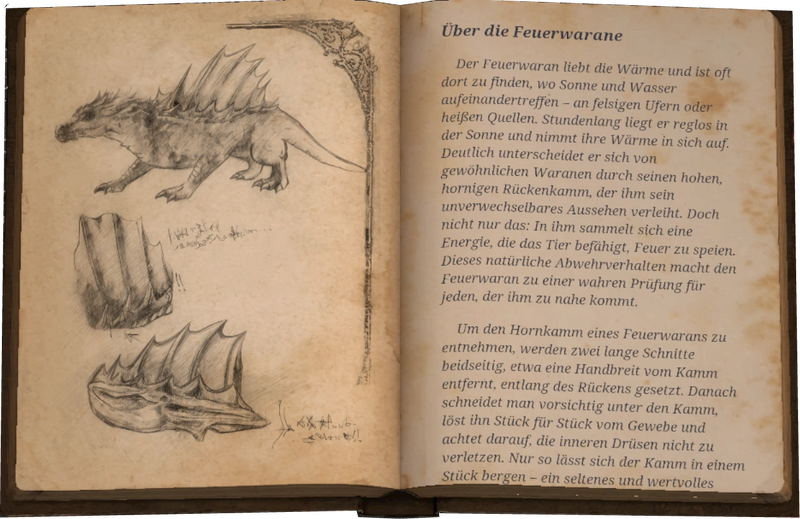 Über die Feuerwarane
Der Feuerwaran liebt die Wärme und ist oft
dort zu finden, wo Sonne und Wasser
aufeinandertreffen – an felsigen Ufern oder
heißen Quellen. Stundenlang liegt er reglos in
der Sonne und nimmt ihre Wärme in sich auf.
Deutlich unterscheidet er sich von
gewöhnlichen Waranen durch seinen hohen,
hornigen Rückenkamm, der ihm sein
unverwechselbares Aussehen verleiht. Doch
nicht nur das: In ihm sammelt sich eine
Energie, die das Tier befähigt, Feuer zu speien.
Dieses natürliche Abwehrverhalten macht den
Feuerwaran zu einer wahren Prüfung für
jeden, der ihm zu nahe kommt.
Um den Hornkamm eines Feuerwarans zu
entnehmen, werden zwei lange Schnitte
beidseitig, etwa eine Handbreit vom Kamm
entfernt, entlang des Rückens gesetzt. Danach
schneidet man vorsichtig unter den Kamm,
löst ihn Stück für Stück vom Gewebe und
achtet darauf, die inneren Drüsen nicht zu
verletzen. Nur so lässt sich der Kamm in einem
Stück bergen – ein seltenes und wertvolles